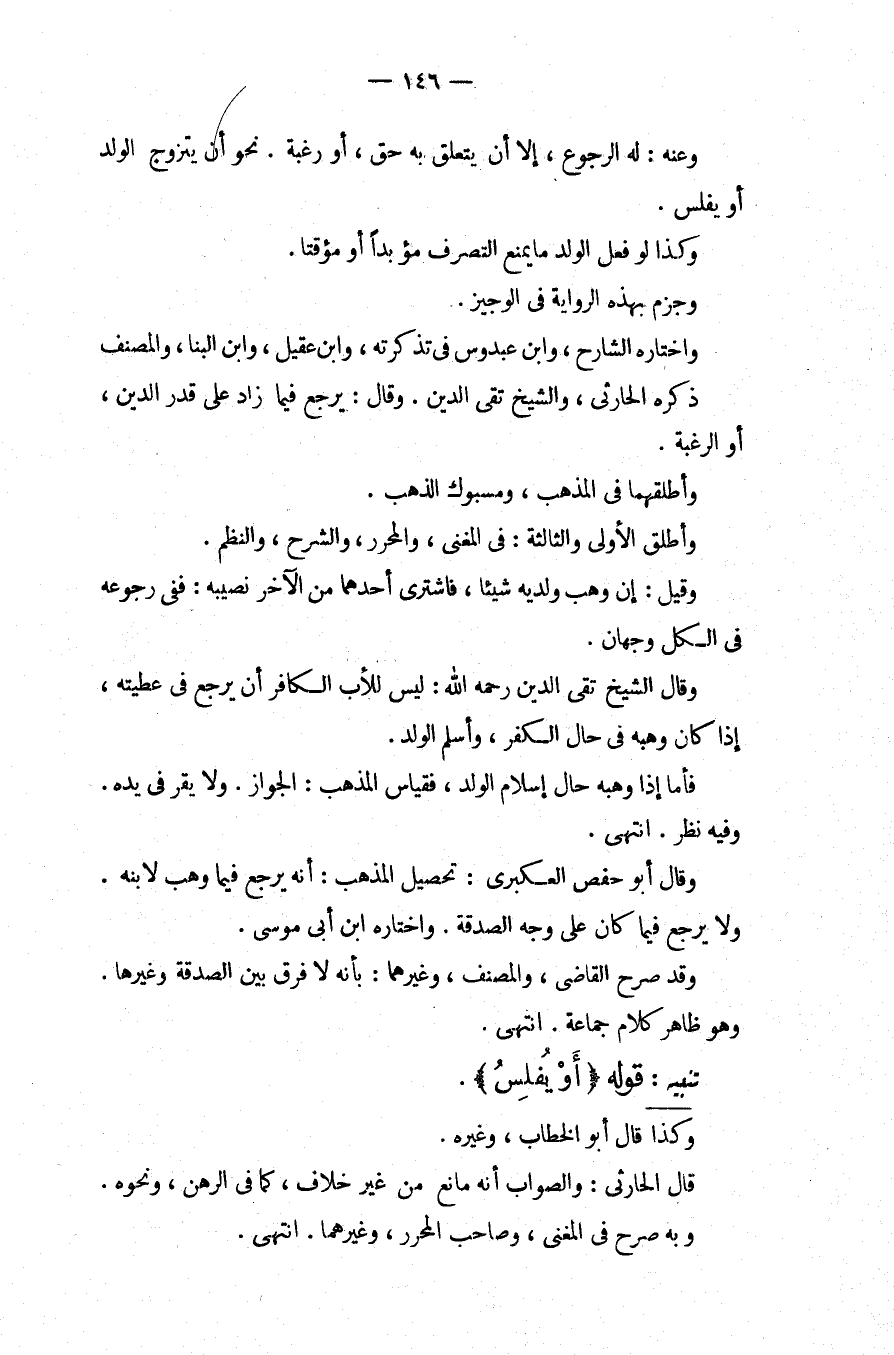 — ١٤٦ —
وعنه : له الرجوع ، إلا أن يتعلق به حق ، أو رغبة . نحو أن يتزوج الولد
أو يفلس .
وكذا لو فعل الولد مايمنع التصرف مؤبداً أو مؤقتا .
وجزم بهذه الرواية فى الوجيز .
واختاره الشارح ، وابن عبدوس فى تذكرته ، وابن عقيل ، وابن البنا ، والمصنف
ذكره الحارثى ، والشيخ تقى الدين . وقال : يرجع فيما زاد على قدر الدين ،
أو الرغبة .
وأطلقهما فى المذهب ، ومسبوك الذهب .
وأطلق الأولى والثالثة : فى المغنى ، والمحرر ، والشرح ، والنظم .
وقيل : إن وهب ولديه شيئا ، فاشترى أحدهما من الآخر نصيبه : ففى رجوعه
فى الكل وجهان .
وقال الشيخ تقى الدين رحمه الله : ليس للأب الكافر أن يرجع فى عطيته ،
إذا كان وهبه فى حال الكفر ، وأسلم الولد .
فأما إذا وهبه حال إسلام الولد ، فقياس المذهب : الجواز . ولا يقر فى يده .
وفيه نظر . انتهى .
وقال أبو حفص العكبرى : تحصيل المذهب : أنه يرجع فيما وهب لابنه .
ولا يرجع فيما كان على وجه الصدقة . واختاره ابن أبى موسى .
وقد صرح القاضى ، والمصنف ، وغيرهما : بأنه لا فرق بين الصدقة وغيرها .
وهو ظاهر كلام جماعة . انتهى .
تنبيه : قوله ﴿ أَوْ يُفلِسُ ﴾ .
وكذا قال أبو الخطاب ، وغيره .
قال الحارثى : والصواب أنه مانع من غير خلاف ، كما فى الرهن ، ونحوه .
وبه صرح فى المغنى ، وصاحب المحرر ، وغيرهما . انتهى .